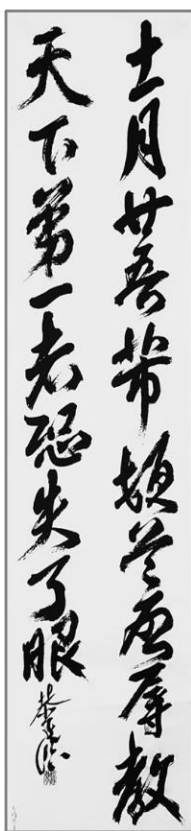 十一月廿五日芾頓首啟辱教
天下第一者恐失了眼